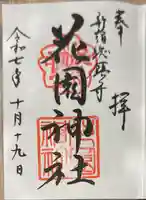 奉
拝
新宿総鎮守
花園神社
令和七年十月十九日